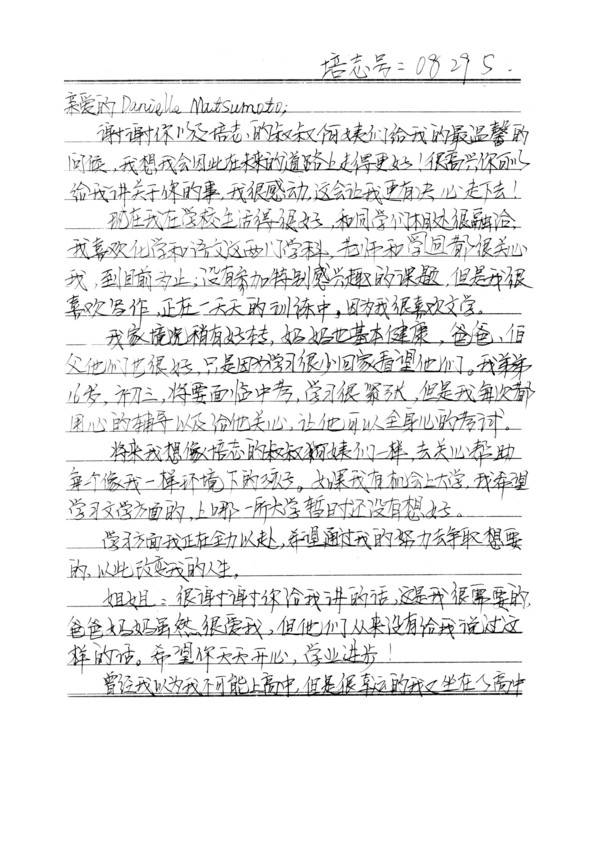 培志号：08295.
亲爱的Danielle Matsumoto;
谢谢你以及培志的叔叔阿姨们给我的最温馨的
问候，我想我会因此在未来的道路上走得更好！很高兴你可以
给我讲关于你的事，我很感动，这会让我更有决心走下去！
现在我在学校生活得很好，和同学们相处很融洽，
我喜欢化学和语文这两门学科，老师和学回都很关心
我，到目前为止，没有参加特别感兴趣的课题，但是我很
喜欢写作，正在一天天的训练中，因为我很喜欢文学。
我家境况稍有好转，妈妈也基本健康，爸爸、伯
父他们也很好，只是因为学习很少回家看望他们。我弟弟
16岁，初三，将要面临中考，学习很紧张，但是我每次都
用心的辅导以及给他关心，让他可以全身心的考试。
将来我想像培志的叔叔阿姨们一样，去关心帮助
每个像我一样环境下的孩子。如果我有机会上大学，我希望
学习文学方面的，上哪一所大学暂时还没有想好。
学习方面我正在全力以赴，希望通过我的努力去争取想要
的，以此改变我的人生。
姐姐：很谢谢你给我讲的话，这是我很需要的，
爸爸妈妈虽然很爱我，但他们从来没有给我说过这
样的话。希望你天天开心，学业进步！
曾经我以为我不可能上高中，但是很幸运的我又坐在了高中